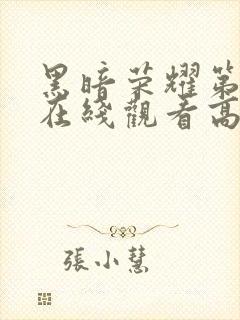 黑暗荣耀第
在綫觀看高
張小慧